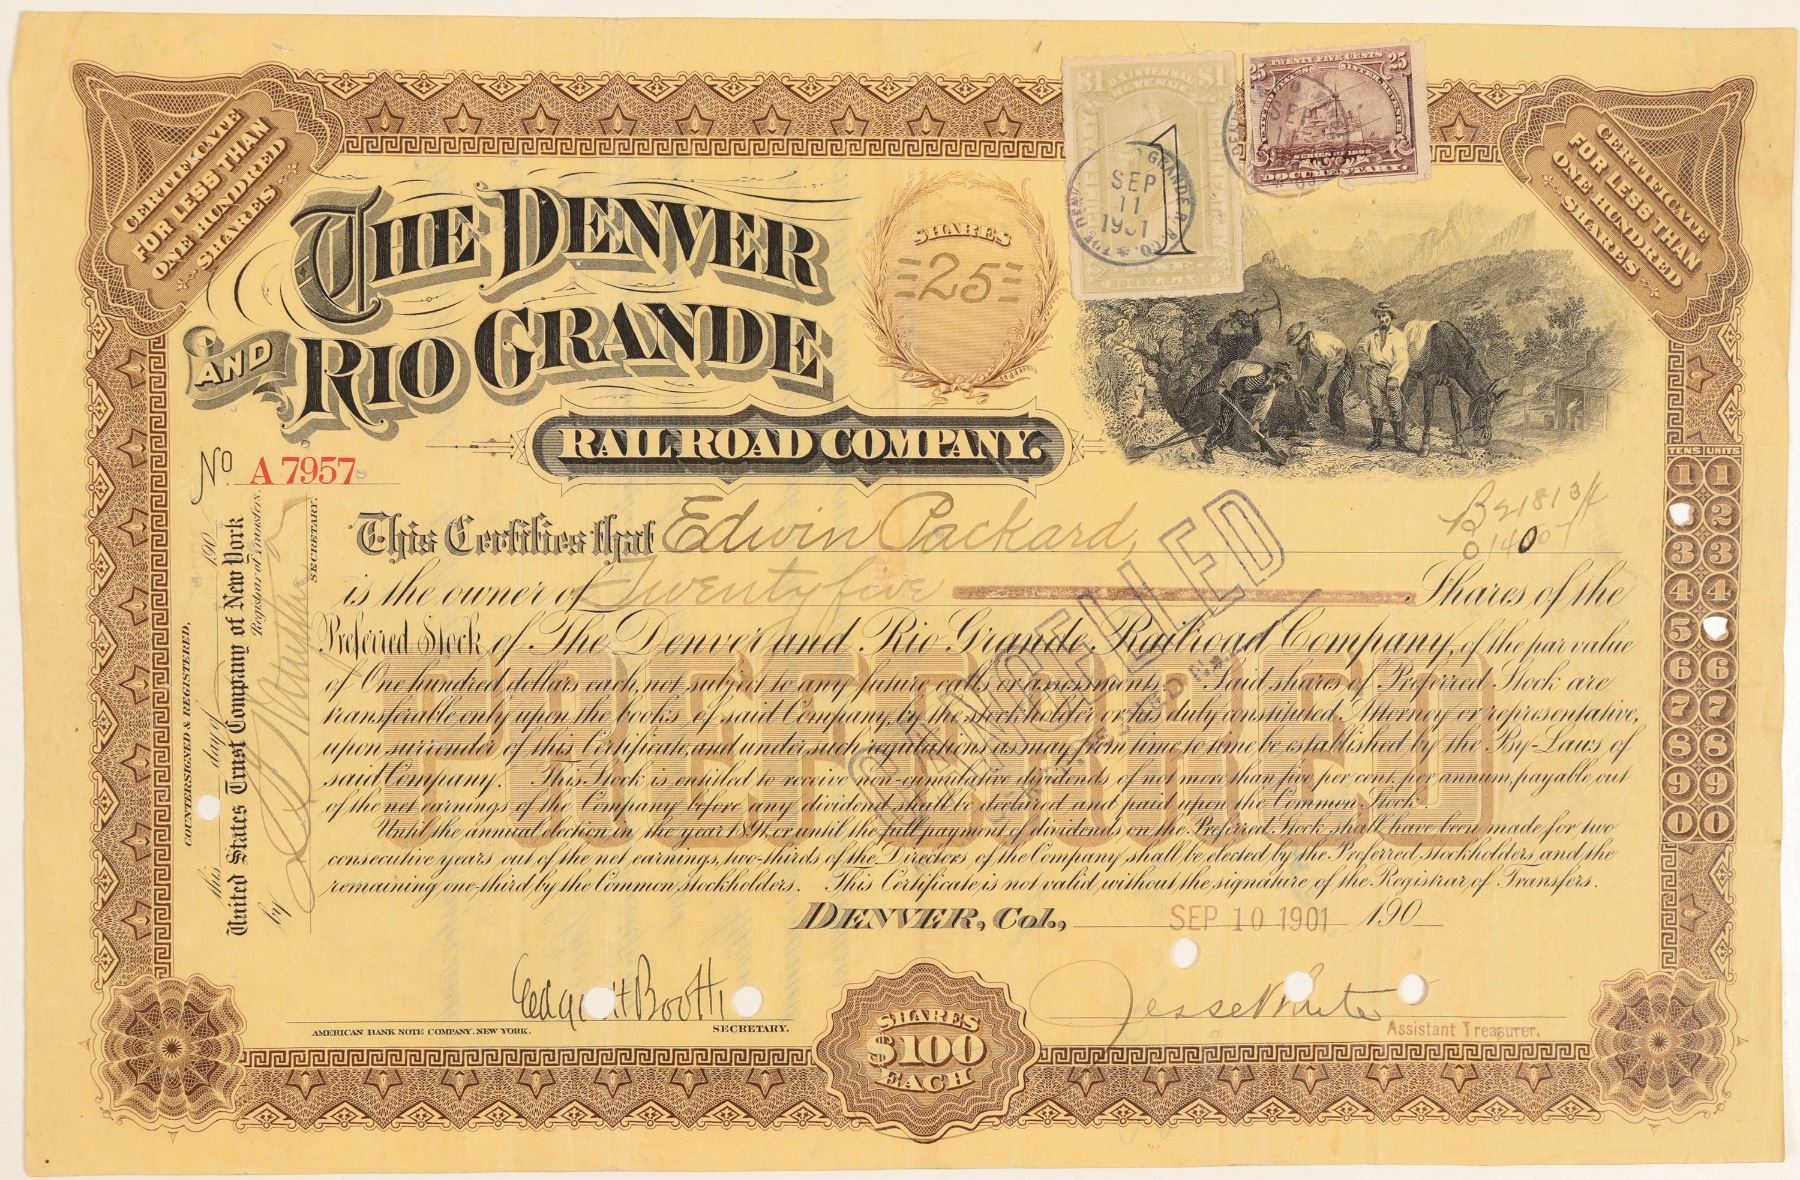 CERTIFICATE
FOR LESS THAN
ONE HUNDRED
SHARES
CERTIFICATE
FOR LESS THAN
ONE HUNDRED
SHARES
$1 U.S. INTERNAL $1
REVENUE
1
SEP
11
1901
25 TWENTY FIVE CENTS 25
SERIES OF 1898
DOCUMENTARY
SEP
THE DENVER
AND RIO GRANDE
RAILROAD COMPANY.
SHARES
=25=
No. A 7957
TENS UNITS
1 1
2 2
3 3
4 4
5 5
6 6
7 7
8 8
9 9
0 0
This Certifies that Edwin Packard,
is the owner of Twenty five Shares of the
Preferred Stock of The Denver and Rio Grande Railroad Company, of the par value
of One hundred dollars each, not subject to any future calls or assessments. Said shares of Preferred Stock are
transferable only upon the books of said Company, by the stockholder or his duly constituted Attorney or representative,
upon surrender of this Certificate, and under such regulations as may from time to time be established by the By-Laws of
said Company. This Stock is entitled to receive non-cumulative dividends of not more than five per cent. per annum, payable out
of the net earnings of the Company before any dividend shall be declared and paid upon the Common Stock.
Until the annual election in the year 1891, or until the full payment of dividends on the Preferred Stock shall have been made for two
consecutive years out of the net earnings, two-thirds of the Directors of the Company shall be elected by the Preferred stockholders, and the
remaining one-third by the Common stockholders. This Certificate is not valid without the signature of the Registrar of Transfers.
PREFERRED
CANCELLED
DENVER, Col., SEP 10 1901 190
COUNTERSIGNED & REGISTERED.
this day of 190
United States Trust Company of New York
Registrar of Transfers.
by SECRETARY.
SECRETARY.
Jesse White
Assistant Treasurer.
AMERICAN BANK NOTE COMPANY, NEW YORK.
SHARES
$100
EACH